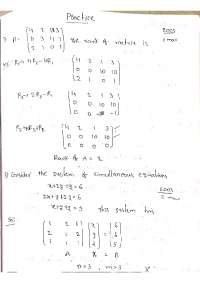 Practice
2003
7) A = [4 2 1 3
6 3 4 7
2 1 0 1] the rank of matrix is 2 mark
[4 2 1 3
0 0 10 10
2 1 0 1]
R3 → 2R3 - R1 [4 2 1 3
0 0 10 10
0 0 -1 -1]
[4 2 1 3
0 0 10 10
0 0 0 0]
Rank of A = 2
Consider the system of simultaneous equations
x+2y+z=6
2x+y+2z=6 2003
x+y+z=5 this system has
Sol: [1 2 1
2 1 2
1 1 1] [x
y
z] = [6
6
5]
A X = B
n=3, m=3